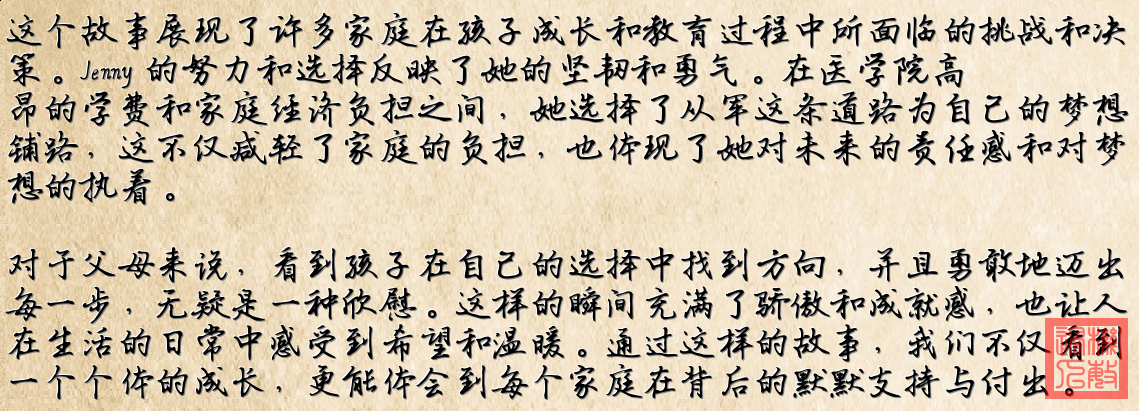 这个故事展现了许多家庭在孩子成长和教育过程中所面临的挑战和决
策。Jenny 的努力和选择反映了她的坚韧和勇气。在医学院高
昂的学费和家庭经济负担之间，她选择了从军这条道路为自己的梦想
铺路，这不仅减轻了家庭的负担，也体现了她对未来的责任感和对梦
想的执着。
对于父母来说，看到孩子在自己的选择中找到方向，并且勇敢地迈出
每一步，无疑是一种欣慰。这样的瞬间充满了骄傲和成就感，也让人
在生活的日常中感受到希望和温暖。通过这样的故事，我们不仅看到
一个个体的成长，更能体会到每个家庭在背后的默默支持与付出。